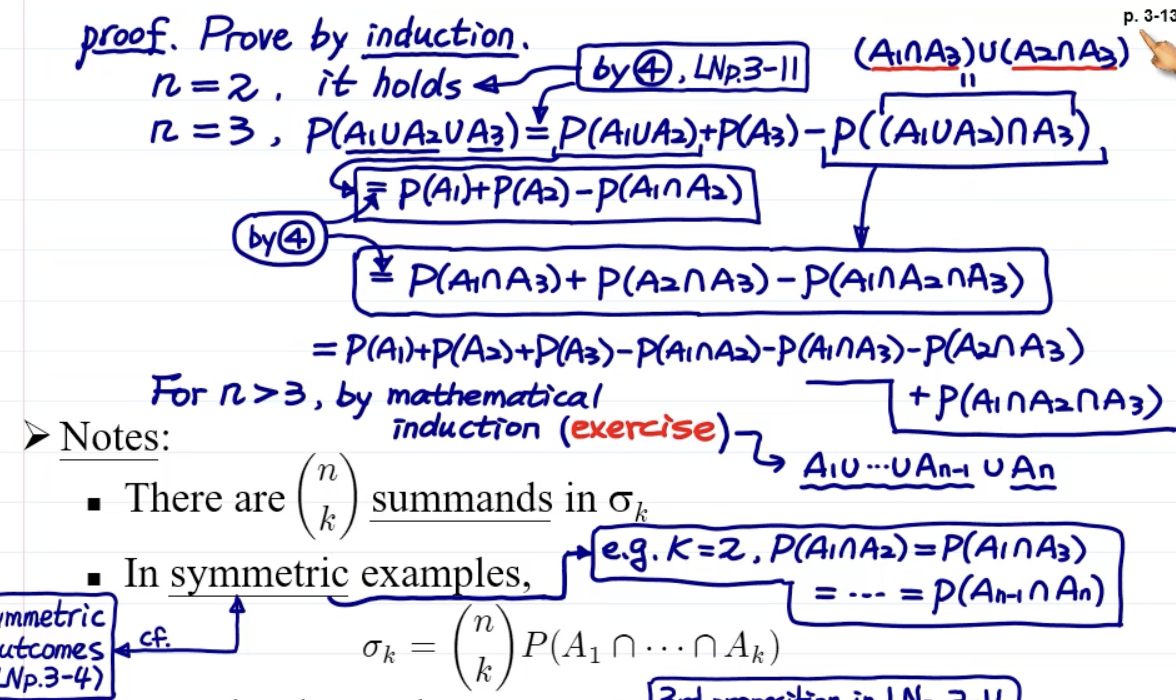 p. 3-13
proof. Prove by induction.
(A1∩A3)∪(A2∩A3)
n=2, it holds
by ④, LNp.3-11
=
n=3, P(A1∪A2∪A3)=P(A1∪A2)+P(A3)-P((A1∪A2)∩A3)
= P(A1)+P(A2)-P(A1∩A2)
by ④
= P(A1∩A3)+P(A2∩A3)-P(A1∩A2∩A3)
=P(A1)+P(A2)+P(A3)-P(A1∩A2)-P(A1∩A3)-P(A2∩A3)
+P(A1∩A2∩A3)
For n>3, by mathematical
induction (exercise)
A1∪···∪An-1 ∪ An
➤ Notes:
▪ There are (n k) summands in σk
e.g. K=2, P(A1∩A2)=P(A1∩A3)
= --- = P(An-1∩An)
▪ In symmetric examples,
mmetric
utcomes
LNp.3-4)
cf.
σk = (n k) P(A1 ∩ ··· ∩ Ak)